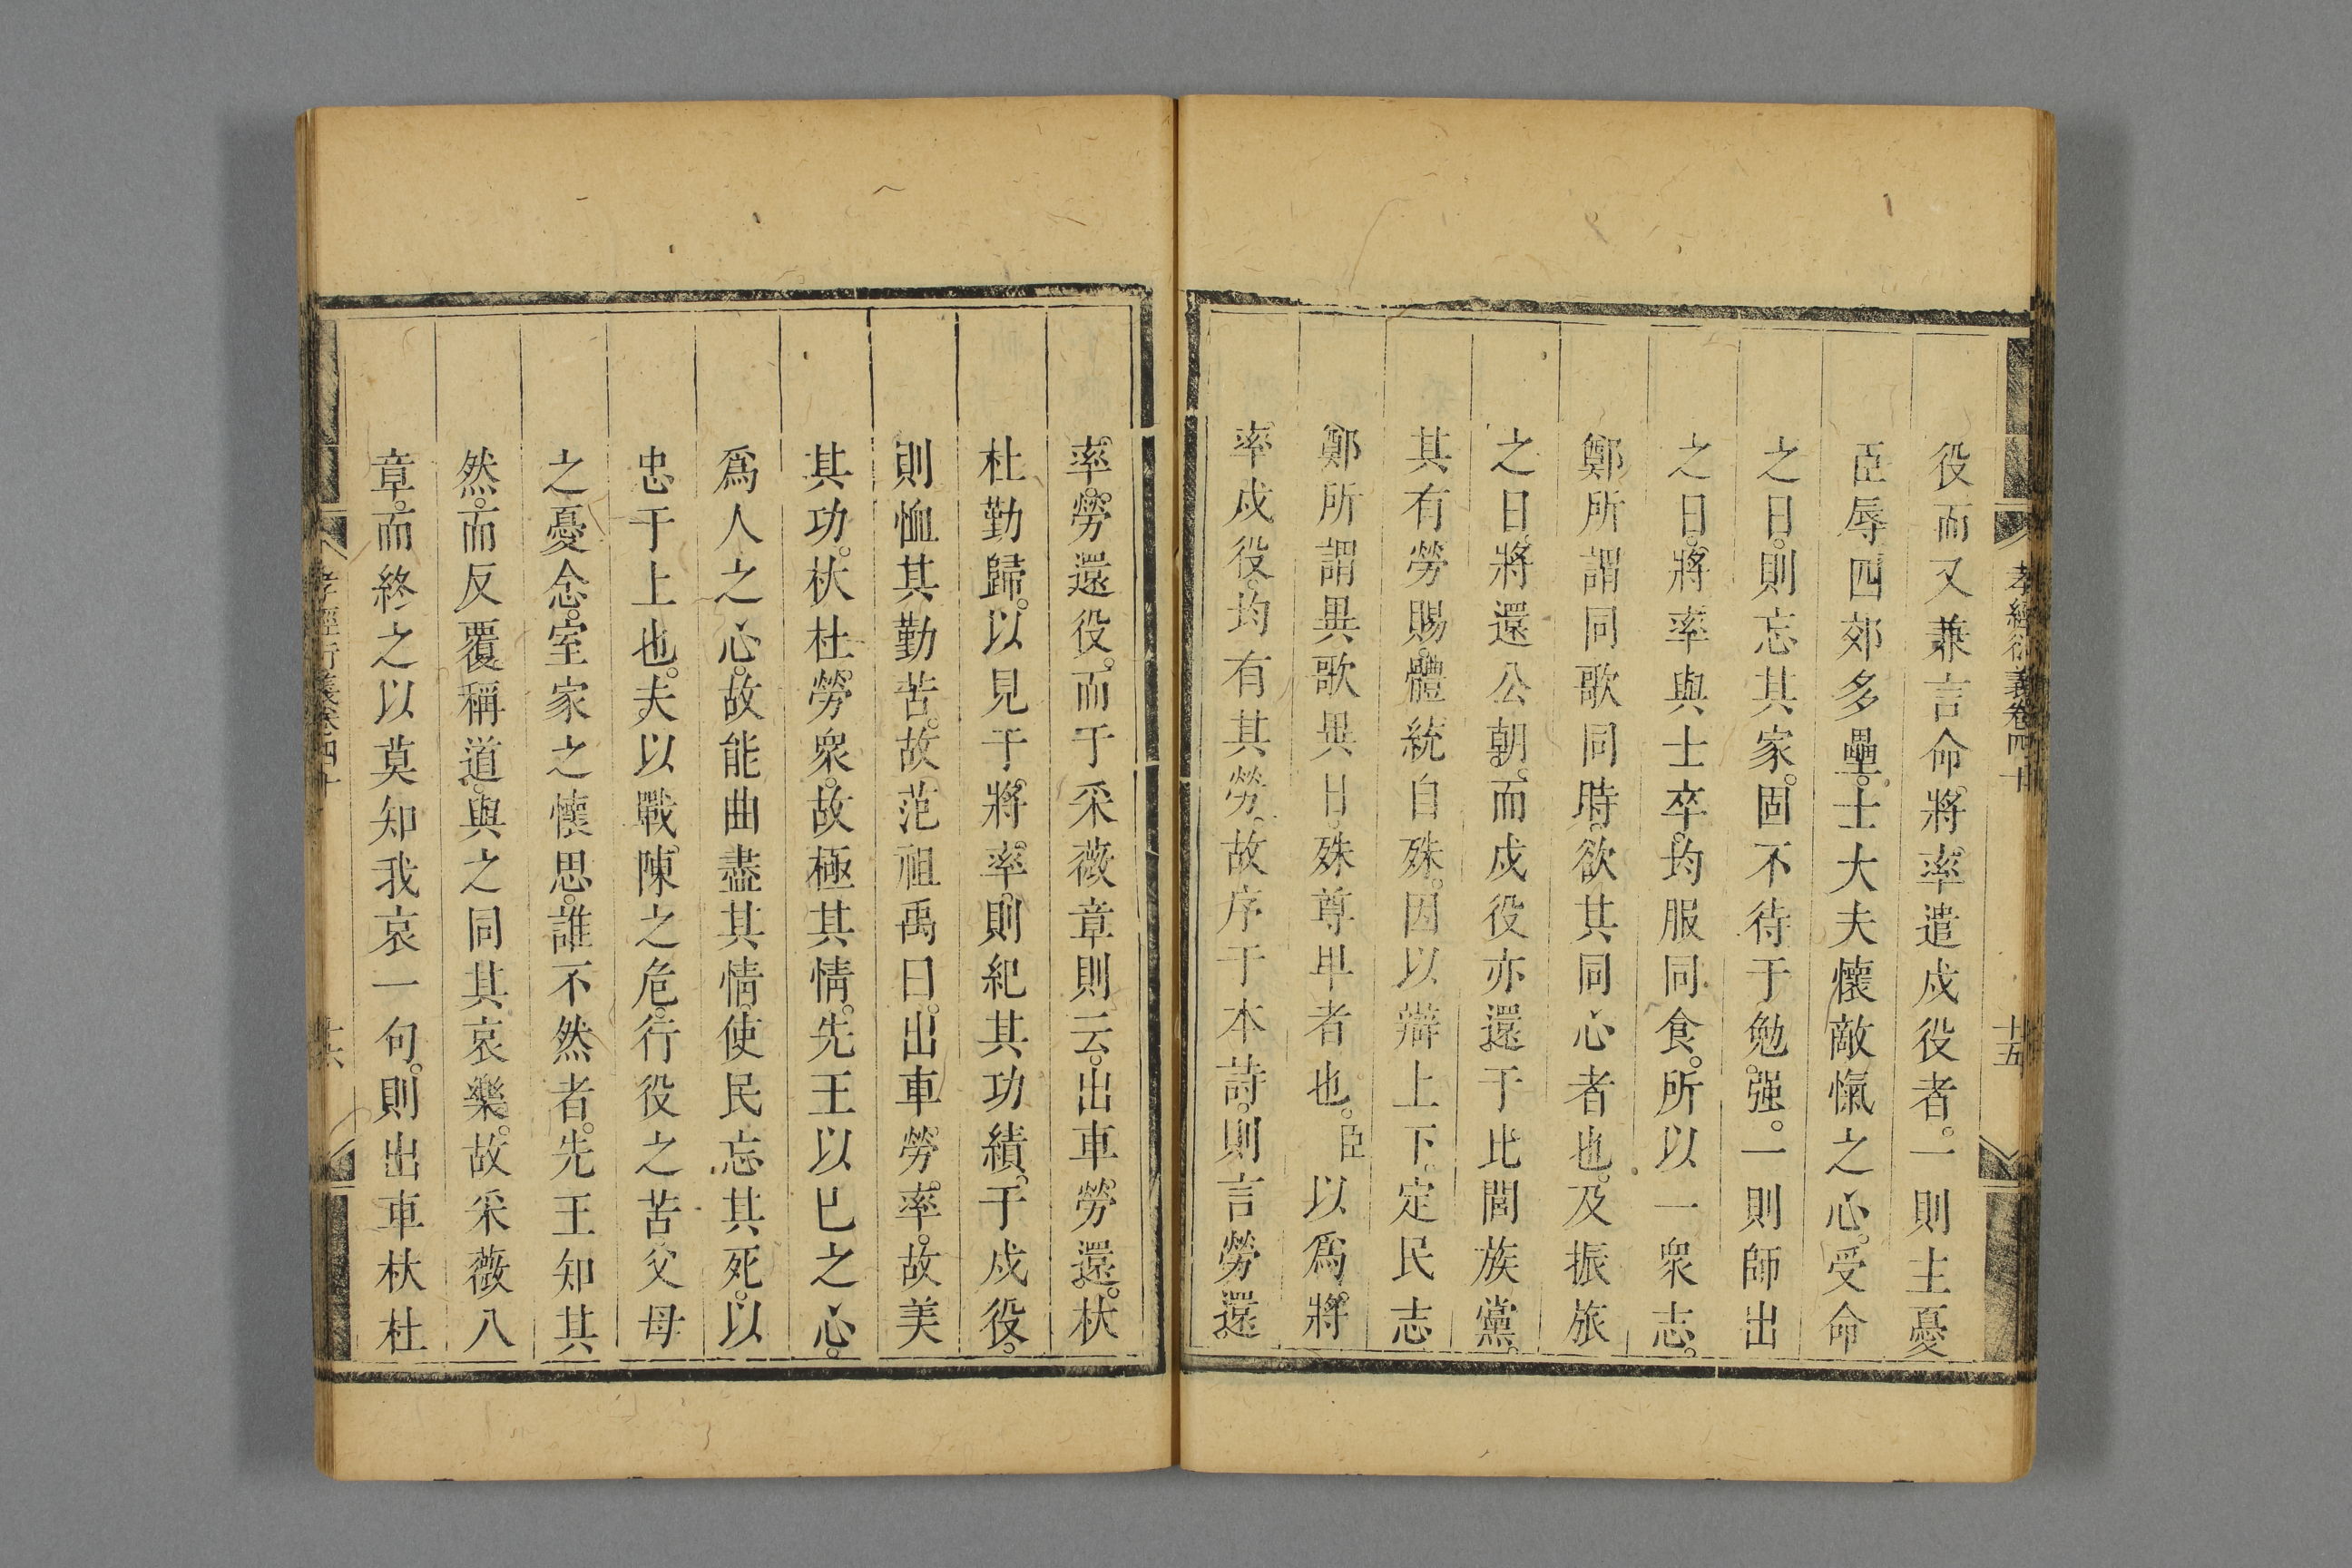 孝經衍義卷四十
十五
役而又兼言命將率遣戍役者。一則主憂
臣辱四郊多壘。士大夫懷敵愾之心。受命
之日。則忘其家。固不待于勉强。一則師出
之日。將率與士卒。均服同食。所以一衆志。
鄭所謂同歌同時。欲其同心者也。及振旅
之日。將還公朝。而戍役亦還于比閭族黨。
其有勞賜。體統自殊。因以辯上下。定民志
鄭所謂異歌異日。殊尊卑者也。臣以爲。將
率戍役。均有其勞。故序于本詩。則言勞還
率。勞還役。而于采薇章則云。出車勞還。杕
杜勤歸。以見于將率。則紀其功績。于戍役。
則恤其勤苦。故范祖禹曰。出車勞率。故美
其功。杕杜。勞衆。故極其情。先王以已之心。
爲人之心。故能曲盡其情。使民忘其死。以
忠于上也。夫以戰陳之危。行役之苦父母
之憂念。室家之懷思。誰不然者。先王知其
然。而反覆稱道。與之同其哀樂。故采薇八
章。而終之以莫知我哀一句。則出車杕杜
孝經衍義卷四十
十六